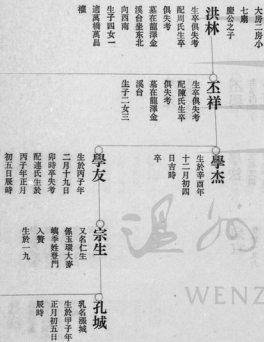 大房二房小
七廳
慶公之子
洪林
生卒俱失考
配周氏生卒
俱失考
墓在龍潭金
溪台坐东北
向西南
生子四女一
適萬橋萬昌
權
丕祥
生卒俱失考
配陳氏生卒
俱失考
墓在龍潭金
溪台
生子二女三
學杰
生於辛酉年
十二月初四
日吉時
卒
學友
生於丙子年
二月十九日
卯時卒失考
配連氏生於
丙子年正月
初五日辰時
宗生
又名仁生
係玉環大麥
嶼季姓登門
入贅
生於一九
孔城
乳名漲城
生於甲子年
正月初五日
辰時
温州
WENZ